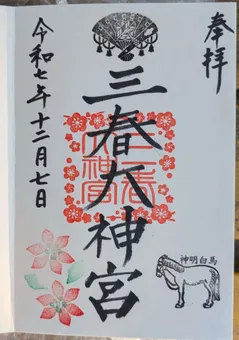 奉拝
三春大神宮
三春
大神宮
令和七年十二月七日
神明白馬